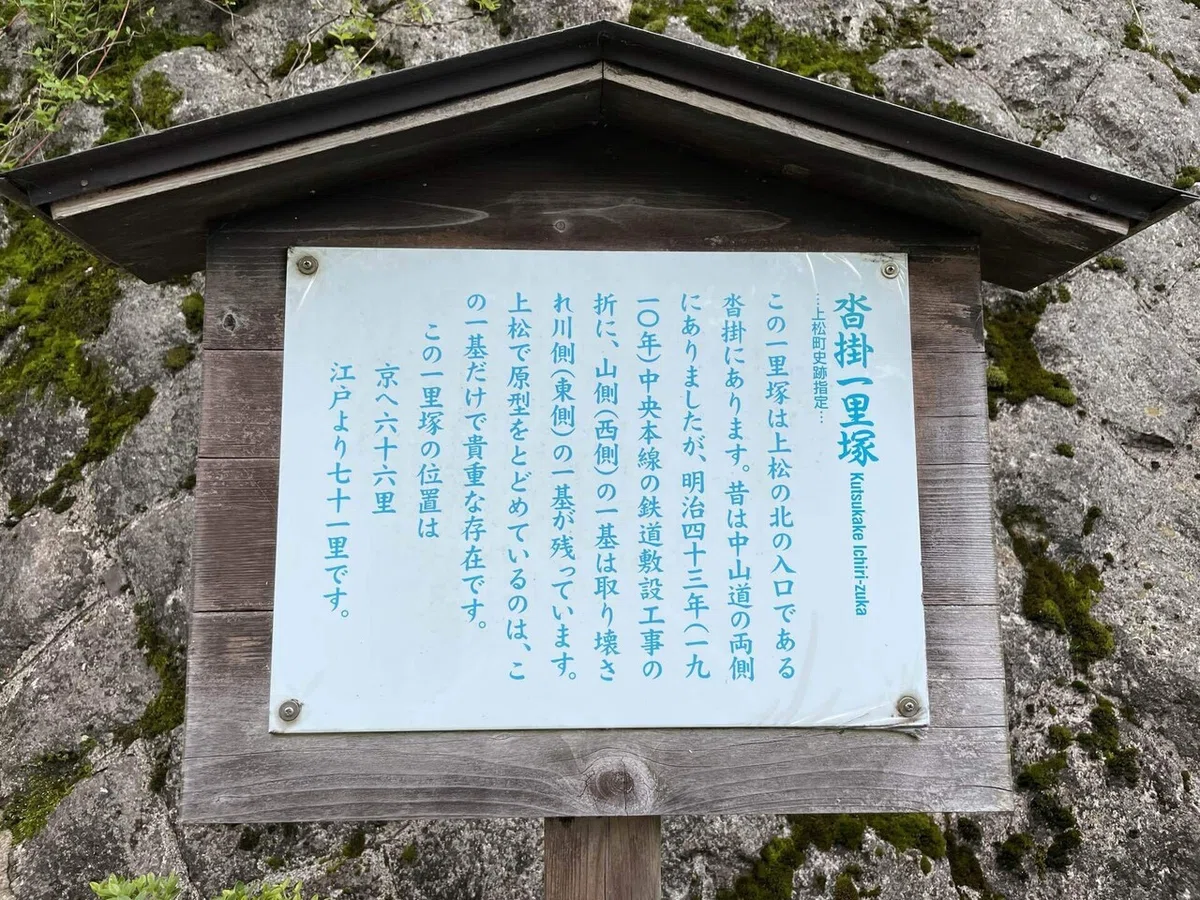 沓掛一里塚 Kutsukake Ichiri-zuka
…上松町史跡指定…
この一里塚は上松の北の入口である
沓掛にあります。昔は中山道の両側
にありましたが、明治四十三年(一九
一〇年)中央本線の鉄道敷設工事の
折に、山側(西側)の一基は取り壊さ
れ川側(東側)の一基が残っています。
上松で原型をとどめているのは、こ
の一基だけで貴重な存在です。
この一里塚の位置は
京へ六十六里
江戸より七十一里です。